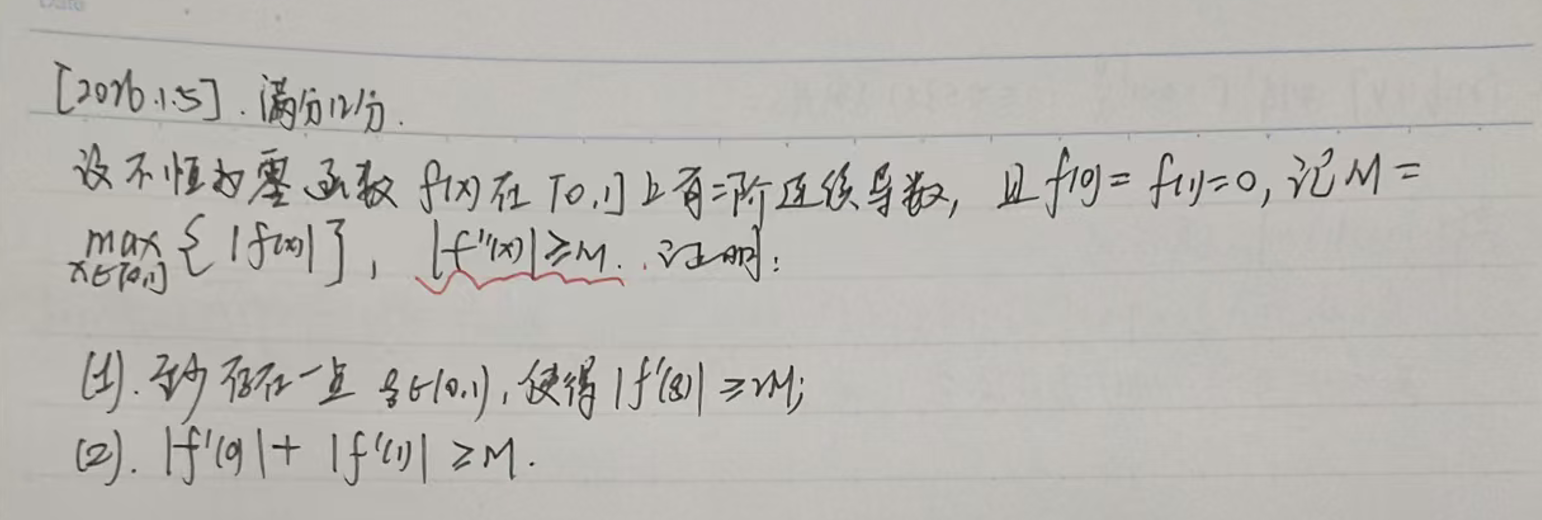 Date
[2026.1.5]. 满分12分.
设不恒为零函数 f(x) 在 [0,1] 上有二阶连续导数, 且 f(0) = f(1) = 0, 记 M =
max x∈[0,1] { |f(x)| }, |f''(x)| ≥ M. 证明:
(1). 至少存在一点 ξ∈(0,1), 使得 |f'(ξ)| ≥ 2M;
(2). |f'(0)| + |f'(1)| ≥ M.